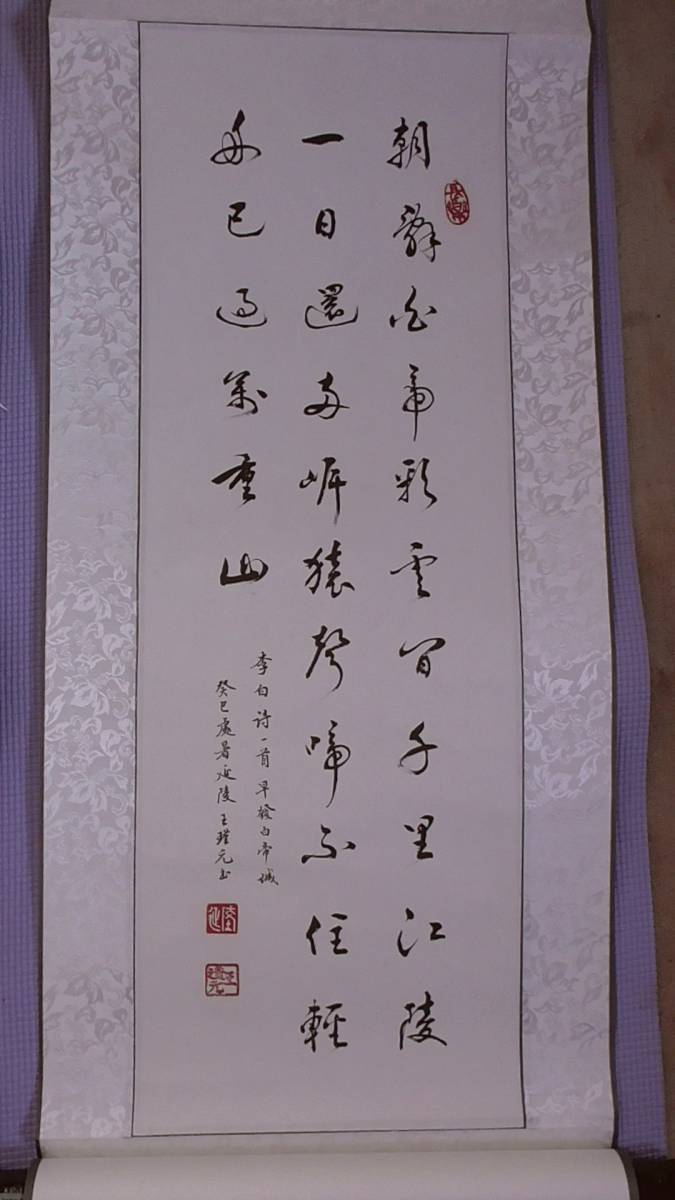 朝辭白帝彩雲間千里江陵
一日還兩岸猿聲啼不住輕
舟已過萬重山
李白诗一首 早發白帝城
癸巳處暑延陵王瑾元书